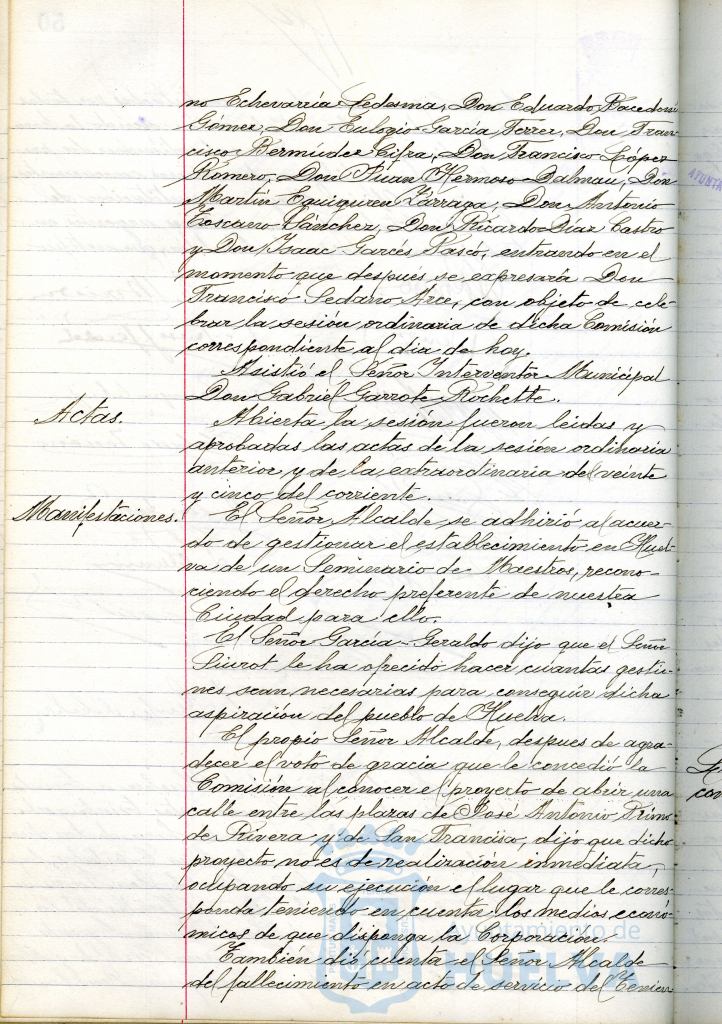 no Echevarría Ledesma, Don Eduardo Bacedoni
Gómez, Don Eulogio García Ferrer, Don Fran-
cisco Bermúdez Cifra, Don Francisco López
Romero, Don Juan Hermoso Dalmau, Don
Martín Eguiguren Zárraga, Don Antonio
Toscano Sánchez, Don Ricardo Díaz Castro
y Don Isaac Garcés Pascó, entrando en el
momento que después se expresaría Don
Francisco Sedano Arce, con objeto de cele-
brar la sesión ordinaria de dicha Comisión
correspondiente al dia de hoy.
Asistió el Señor Interventor Municipal
Don Gabriel Garrote Rochette.
Actas.
Abierta la sesión fueron leidas y
aprobadas las actas de la sesión ordinaria
anterior y de la extraordinaria del veinte
y cinco del corriente.
Manifestaciones.
El Señor Alcalde se adhirió al acuer-
do de gestionar el establecimiento en Huel-
va de un Seminario de Maestros, recono-
ciendo el derecho preferente de nuestra
Ciudad para ello.
El Señor García-Geraldo dijo que el Señor
Siurot le ha ofrecido hacer cuantas gestio-
nes sean necesarias para conseguir dicha
aspiración del pueblo de Huelva.
El propio Señor Alcalde, despues de agra-
decer el voto de gracia que le concedió la
Comisión al conocer el proyecto de abrir una
calle entre las plazas de José Antonio Primo
de Rivera y de San Francisco, dijo que dicho
proyecto no es de realización inmediata,
ocupando su ejecución el lugar que le corres-
ponda teniendo en cuenta los medios econó-
micos de que disponga la Corporación.
También dió cuenta el Señor Alcalde
del fallecimiento en acto de servicio del Tenien-
Ayuntamiento de
HUELVA